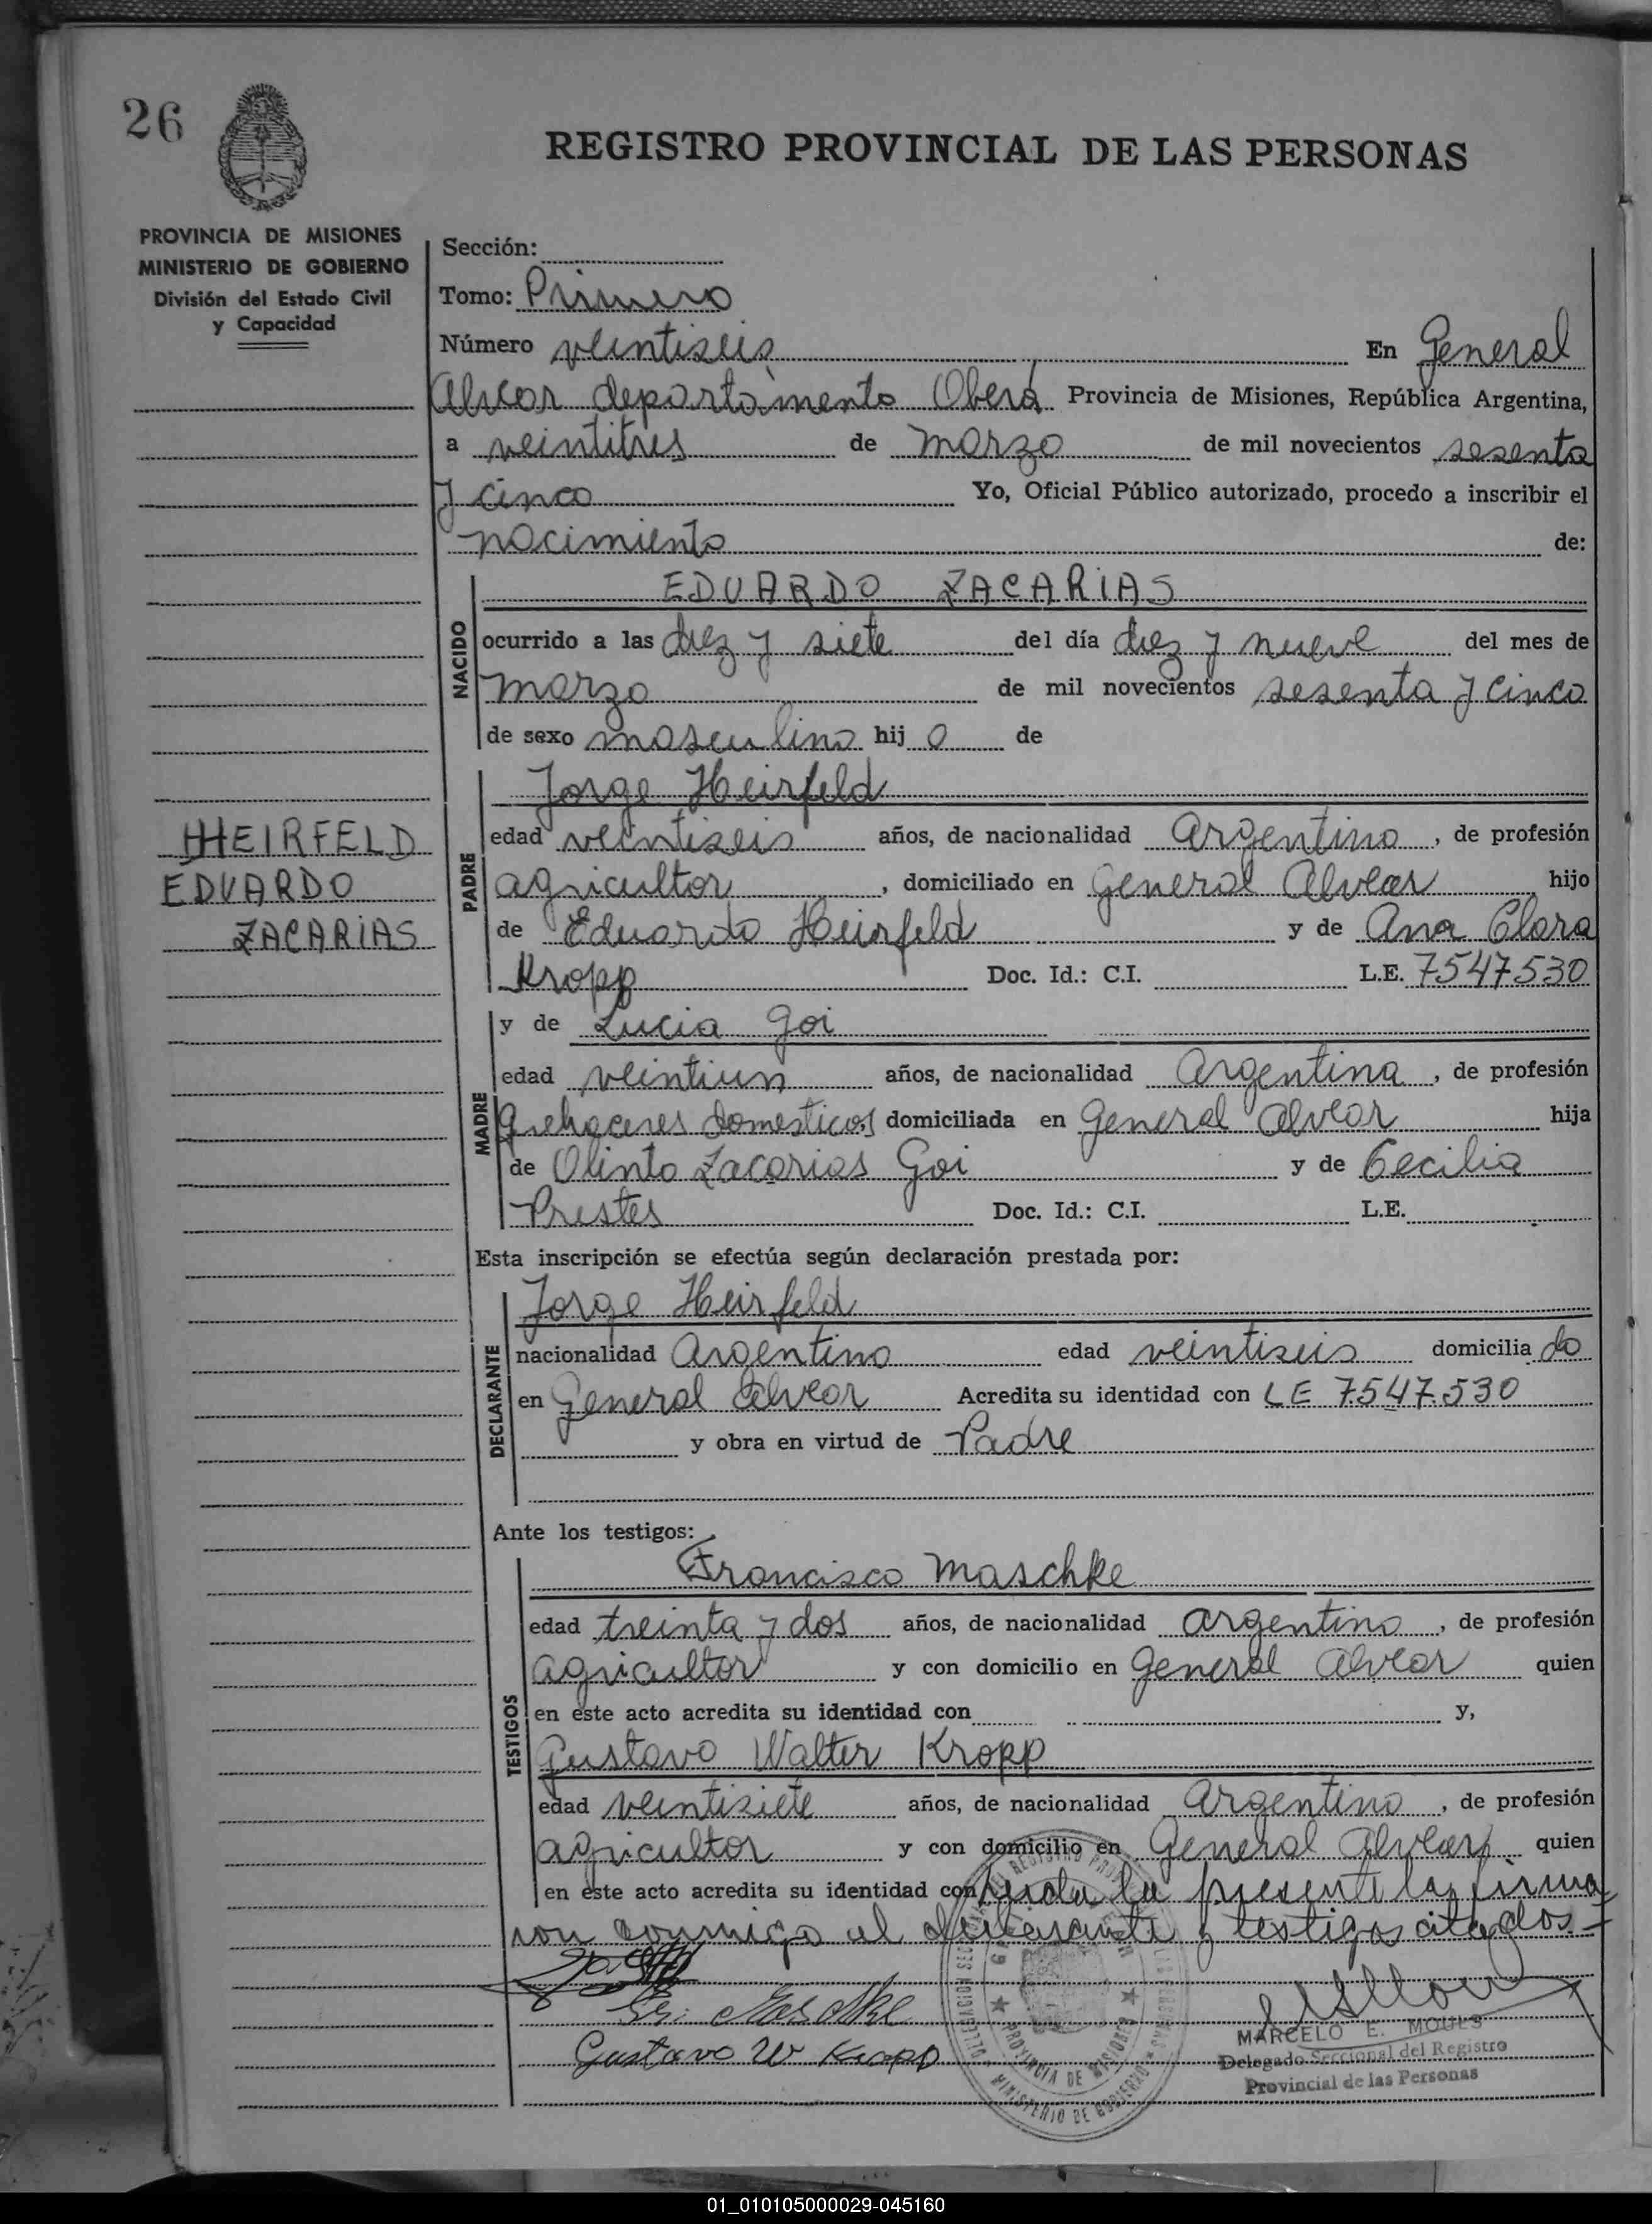 26
REGISTRO PROVINCIAL DE LAS PERSONAS
PROVINCIA DE MISIONES
MINISTERIO DE GOBIERNO
División del Estado Civil
y Capacidad
Sección:
Tomo: Primero
Número veintiseis En General
Alvear departamento Oberá Provincia de Misiones, República Argentina,
a veintitres de marzo de mil novecientos sesenta
y cinco Yo, Oficial Público autorizado, procedo a inscribir el
nacimiento de:
NACIDO
EDUARDO ZACARIAS
ocurrido a las diez y siete del día diez y nueve del mes de
marzo de mil novecientos sesenta y cinco
de sexo masculino hij o de
HEIRFELD
EDUARDO
ZACARIAS
PADRE
Jorge Heirfeld
edad veintiseis años, de nacionalidad Argentino, de profesión
agricultor, domiciliado en General Alvear hijo
de Eduardo Heirfeld y de Ana Clara
Kropp Doc. Id.: C.I. L.E. 7547530
MADRE
y de Lucia Goi
edad veintiun años, de nacionalidad Argentina, de profesión
Quehaceres domesticos domiciliada en General Alvear hija
de Olinto Zacarias Goi y de Cecilia
Prestes Doc. Id.: C.I. L.E.
Esta inscripción se efectúa según declaración prestada por:
DECLARANTE
Jorge Heirfeld
nacionalidad Argentino edad veintiseis domicilia do
en General Alvear Acredita su identidad con LE 7.547.530
y obra en virtud de Padre
Ante los testigos:
TESTIGOS
Francisco Maschke
edad treinta y dos años, de nacionalidad argentino, de profesión
agricultor y con domicilio en General Alvear quien
en este acto acredita su identidad con y,
Gustavo Walter Kropp
edad veintisiete años, de nacionalidad Argentino, de profesión
agricultor y con domicilio en General Alvear quien
en este acto acredita su identidad con leida la presente la firma
ron conmigo el declarante y testigos citados=
Fr: Maschke
Gustavo W Kropp
MARCELO E. MOULS
Delegado Seccional del Registro
Provincial de las Personas
PROVINCIA DE MISIONES
MINISTERIO DE GOBIERNO
01_010105000029-045160